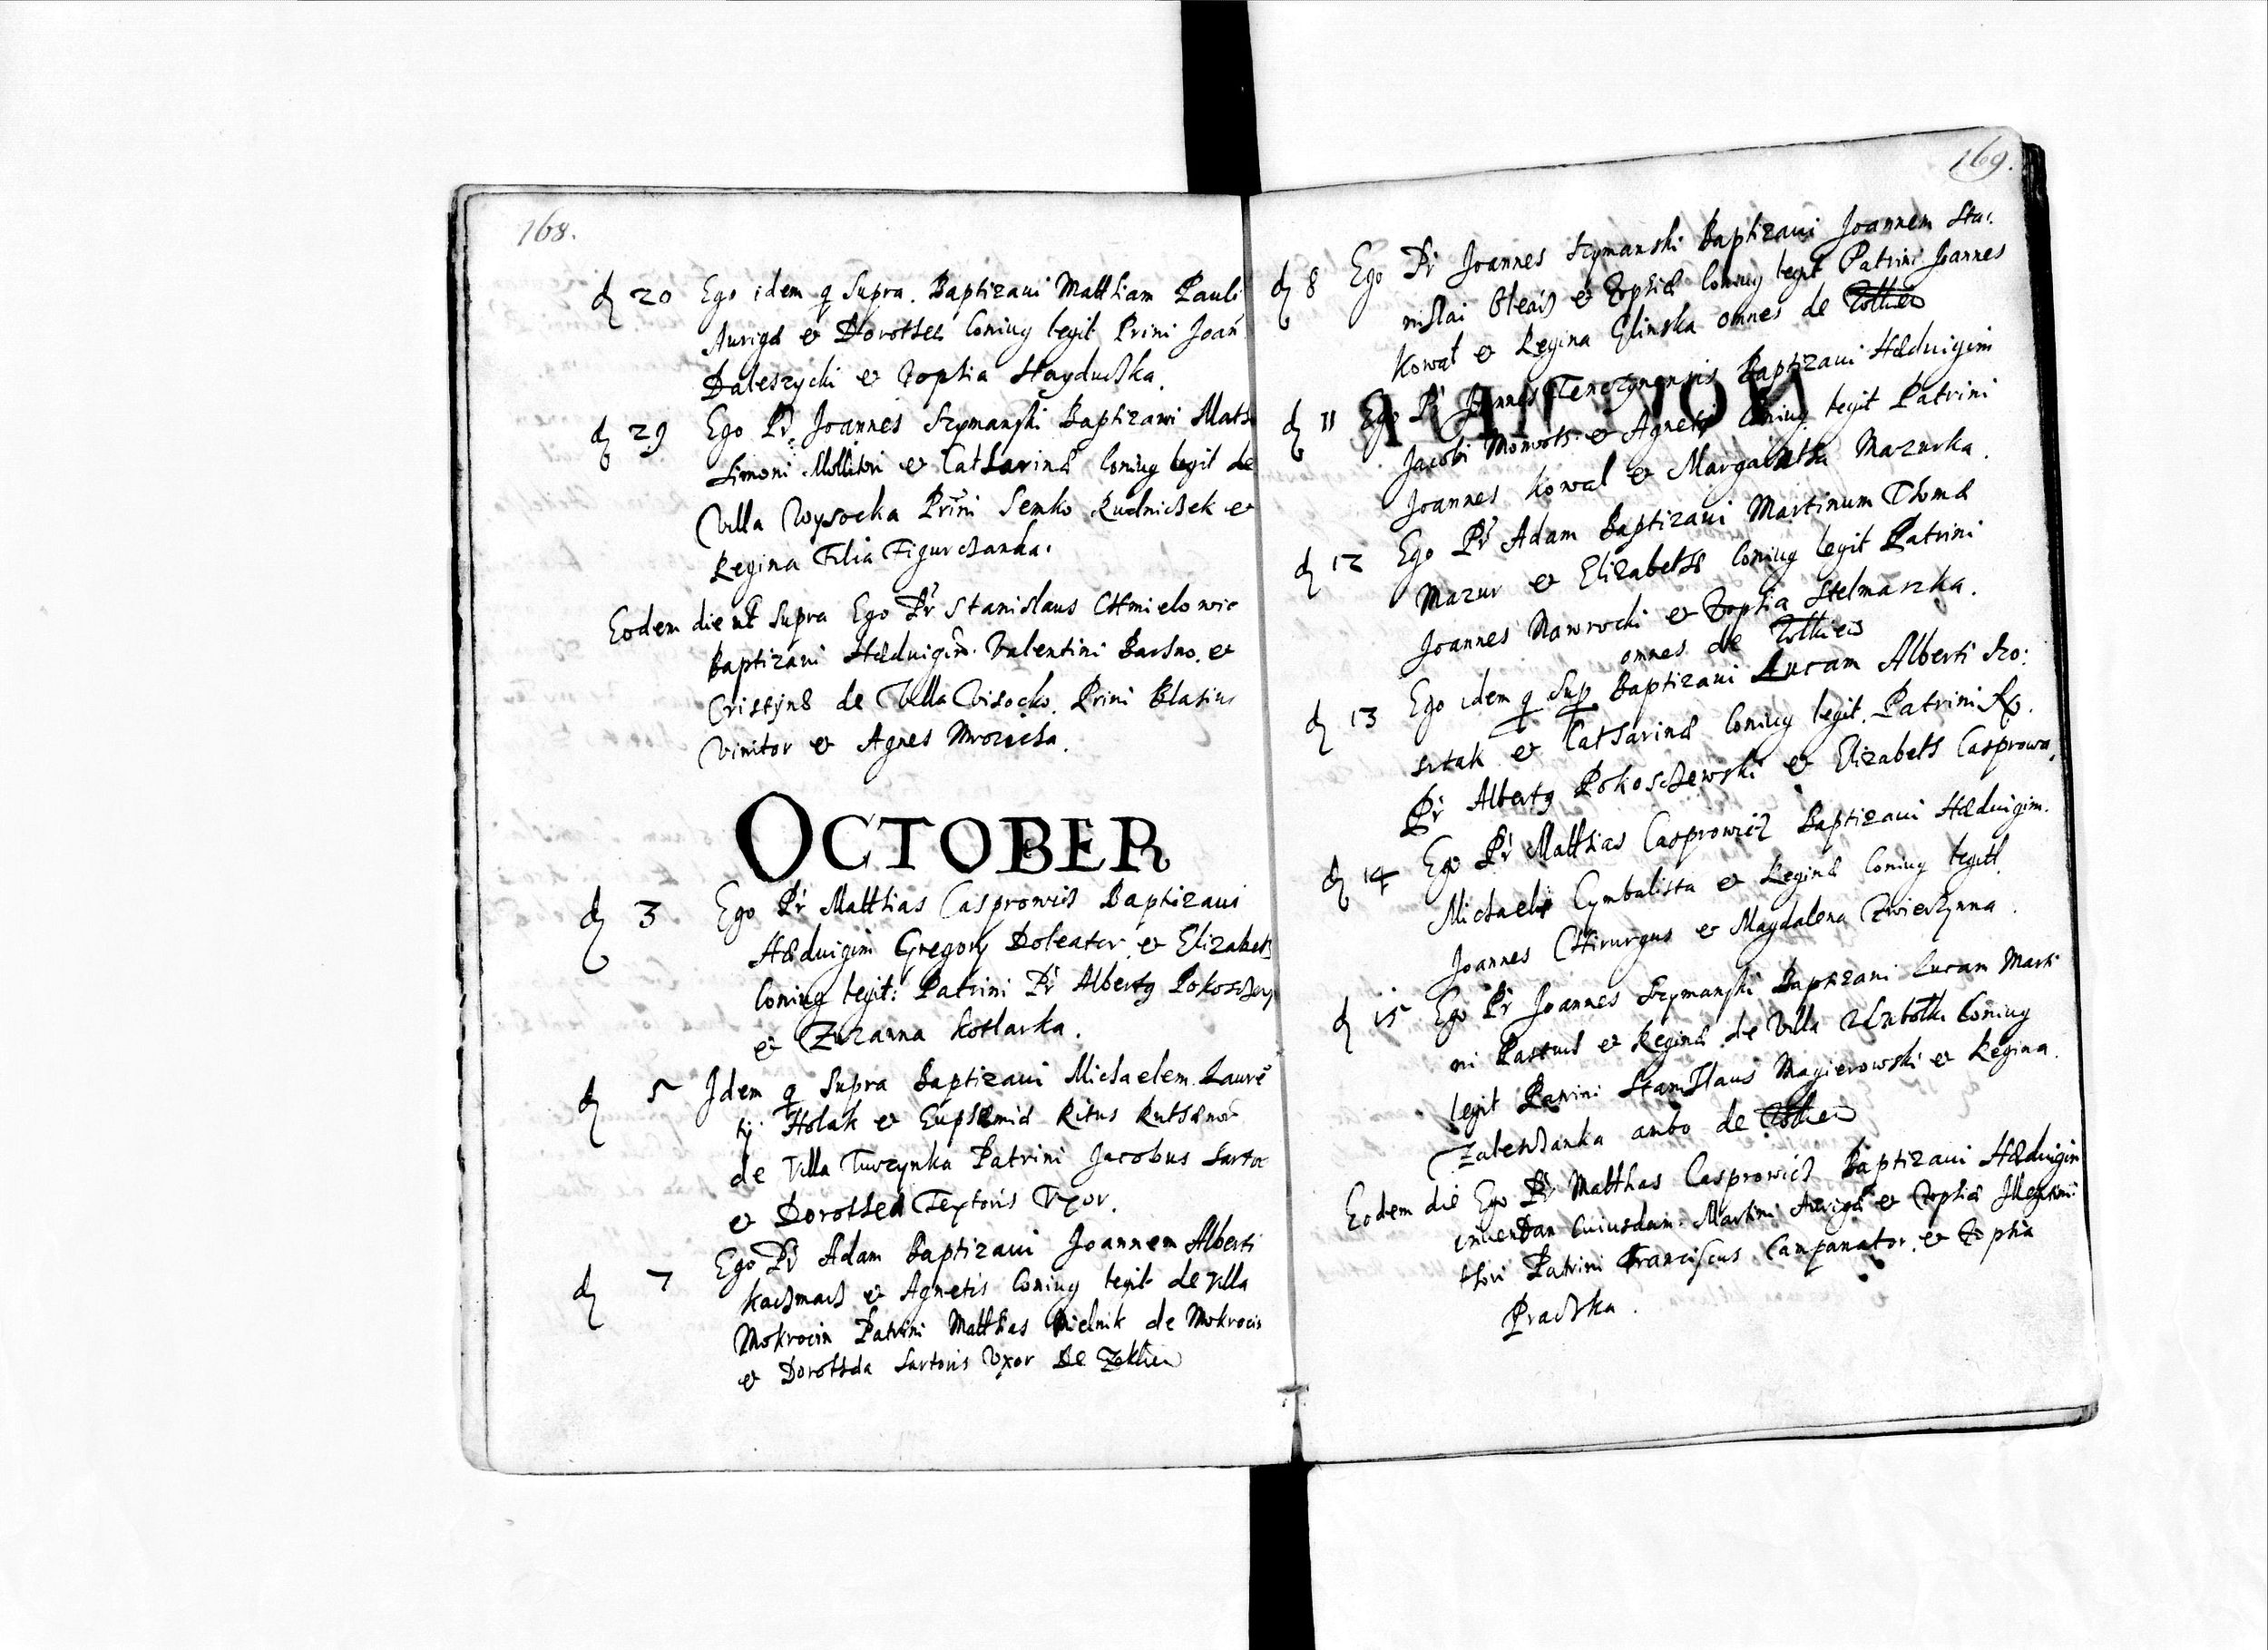 168.
d 20 Ego idem q Supra. Baptizaui Matthiam Pauli
Aurigæ et Dorotheæ Coniug legit Prini Joan
Daleszycki et Zophia Hayduchka.
d 29 Ego Pr Joannes Szymanski Baptizaui Math
Simoni Mollitori et Catharinæ Coniug legit de
Villa Wysocka Prini Semko Rudnichek et
Regina Filia Figurchanka.
Eodem die ut Supra Ego Pr Stanislaus CHmielowic
Baptizaui Hæduigim Valentini et
Cristynæ de Villa Visocko. Prini Blasius
Vinitor et Agnes
OCTOBER
d 3 Ego Pr Matthias Casprowich Baptizaui
Hæduigim Gregory Doleator et Elizabeth
Coniug legit: Patrini Pr Albertq
et Zuzanna Kotlarka.
d 5 Idem q Supra Baptizaui Michaelem Laurē
tij Holak et Euphæmiæ Ritus
de Villa Turzynka Patrini Jacobus Sartor
et Dorothea Textoris Vxor.
d 7 Ego Pr Adam Baptizaui Joannem Alberti
Kachmarh et Agnetis Coniug legit de Villa
Mokrocin Patrini Matthias Mielnik de Mokrocin
et Dorothea Sartoris Vxor De
169.
d 8 Ego Pr Joannes Szymanski Baptizaui Joannem Sta:
nislai et Zophiæ Coniug legit Patrini Joannes
Kowal et Regina Glinska omnes de
d 11 Ego Pr Joannes Tenczynensis Baptizaui Hæduigim
Jacobi et Agnetis Coniug legit Patrini
Joannes Kowal et Margaretha Mazurka.
d 12 Ego Pr Adam Baptizaui Martinum Thomæ
Mazur et Elizabethæ Coniug legit Patrini
Joannes Nawrocki et Zophia Stelmaszka.
omnes de
d 13 Ego idem q Sup Baptizaui Lucam Alberti Szo:
stak et Catharinæ Coniug legit. Patrini
Pr Albertq Pokoschewski et Elizabeth Casprowa.
d 14 Ego Pr Matthias Casprowich Baptizaui Hæduigim.
Michaelis Cymbalista et Reginæ Coniug legit.
Joannes CHirurgus et Magdalena
d 15 Ego Pr Joannes Szymanski Baptizaui Lucam Marti
ni et Reginæ de Villa Coniug
legit Patrini Stanislaus Magierowski et Regina
ambo de
Eodem die Ego Pr Matthias Casprowich Baptizaui Hæduigim
cuiusdam Martini Aurigæ et Zophiæ Illegittimi
thori Patrini Franciscus Campanator. et Zophia
Prachka.